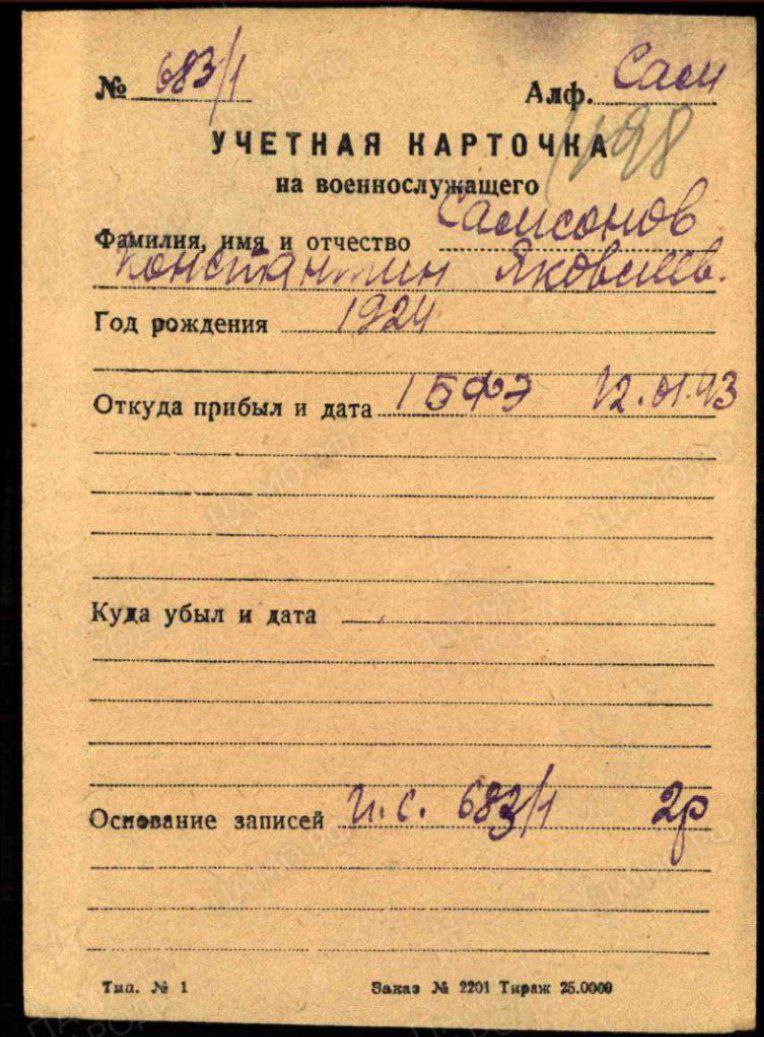 № 683/1 Алф. Сам
198
УЧЕТНАЯ КАРТОЧКА
на военнослужащего
Фамилия, имя и отчество Самсонов
Константин Яковлев.
Год рождения 1924
Откуда прибыл и дата 1 БФЭ 12.01.43
Куда убыл и дата
Основание записей и.с. 683/1 2р
Тип. № 1 Заказ № 2201 Тираж 25.0000